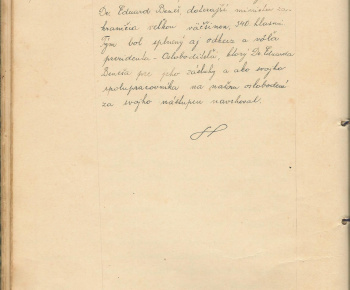 Dr. Eduard Beneš, doterajší minister za-
hraničia veľkou väčšinou, 340 hlasmi
Tým bol splnený aj odkaz a vôľa
prezidenta - Osloboditeľa, ktorý Dr. Eduarda
Beneša pre jeho zásluhy a ako svojho
spolupracovníka na našom oslobodení
za svojho nástupcu navrhoval.